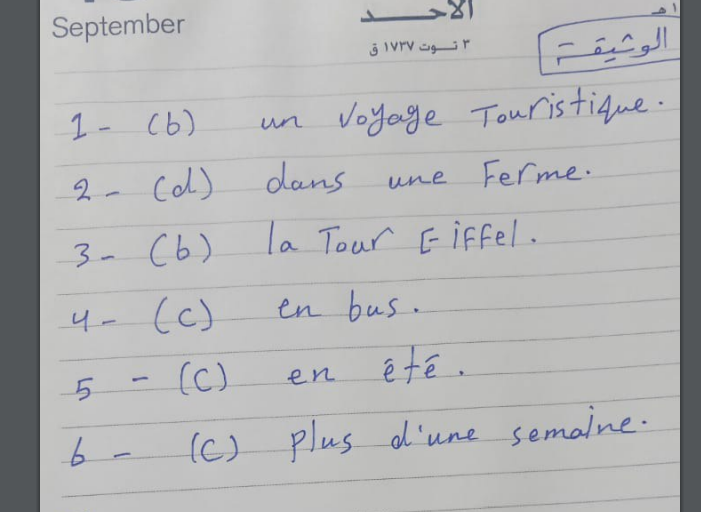 September
الأحد
٣ تـوت ١٧٣٧ ق
الوثيقة
1 - (b) un voyage Touristique.
2 - (d) dans une Ferme.
3 - (b) la Tour Eiffel.
4 - (c) en bus.
5 - (C) en été.
6 - (C) plus d'une semaine.